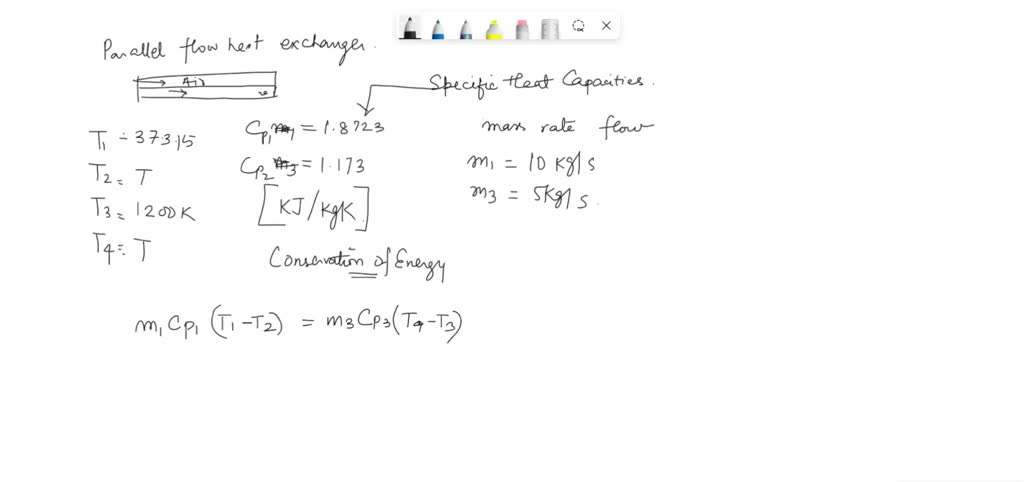 Parallel flow heat exchanger.
Air
Specific Heat Capacities.
T1 = 373.15
T2 = T
T3 = 1200K
T4 = T
Cp1 = 1.8723
Cp2 = 1.173
[KJ/kgK]
mass rate flow
m1 = 10 kg/s
m3 = 5kg/s.
Conservation of Energy
m1 Cp1 (T1 - T2) = m3 Cp3 (T4 - T3)